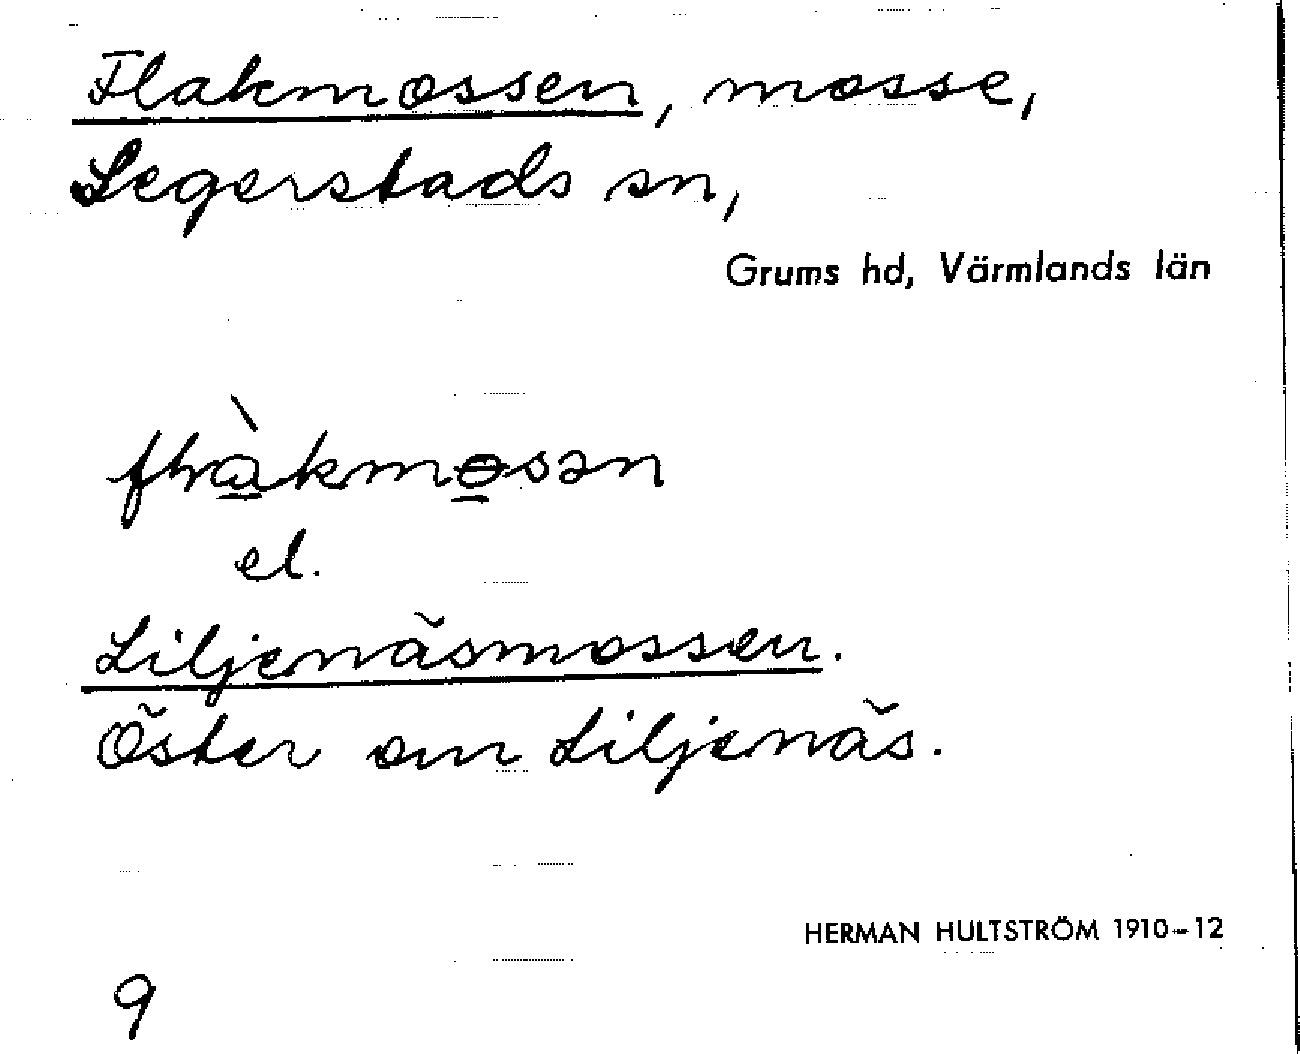 Flakmossen, mosse,
Segerstads sn,
Grums hd, Värmlands län
el.
Liljenäsmossen.
Öster om Liljenäs.
HERMAN HULTSTRÖM 1910-12
9